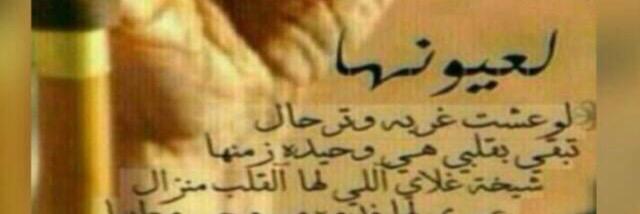 لعيونها
لو عشت غربه وترحال
تبقى بقلبي هي وحيده زمنها
شيخة غلاي اللي لها القلب منزال